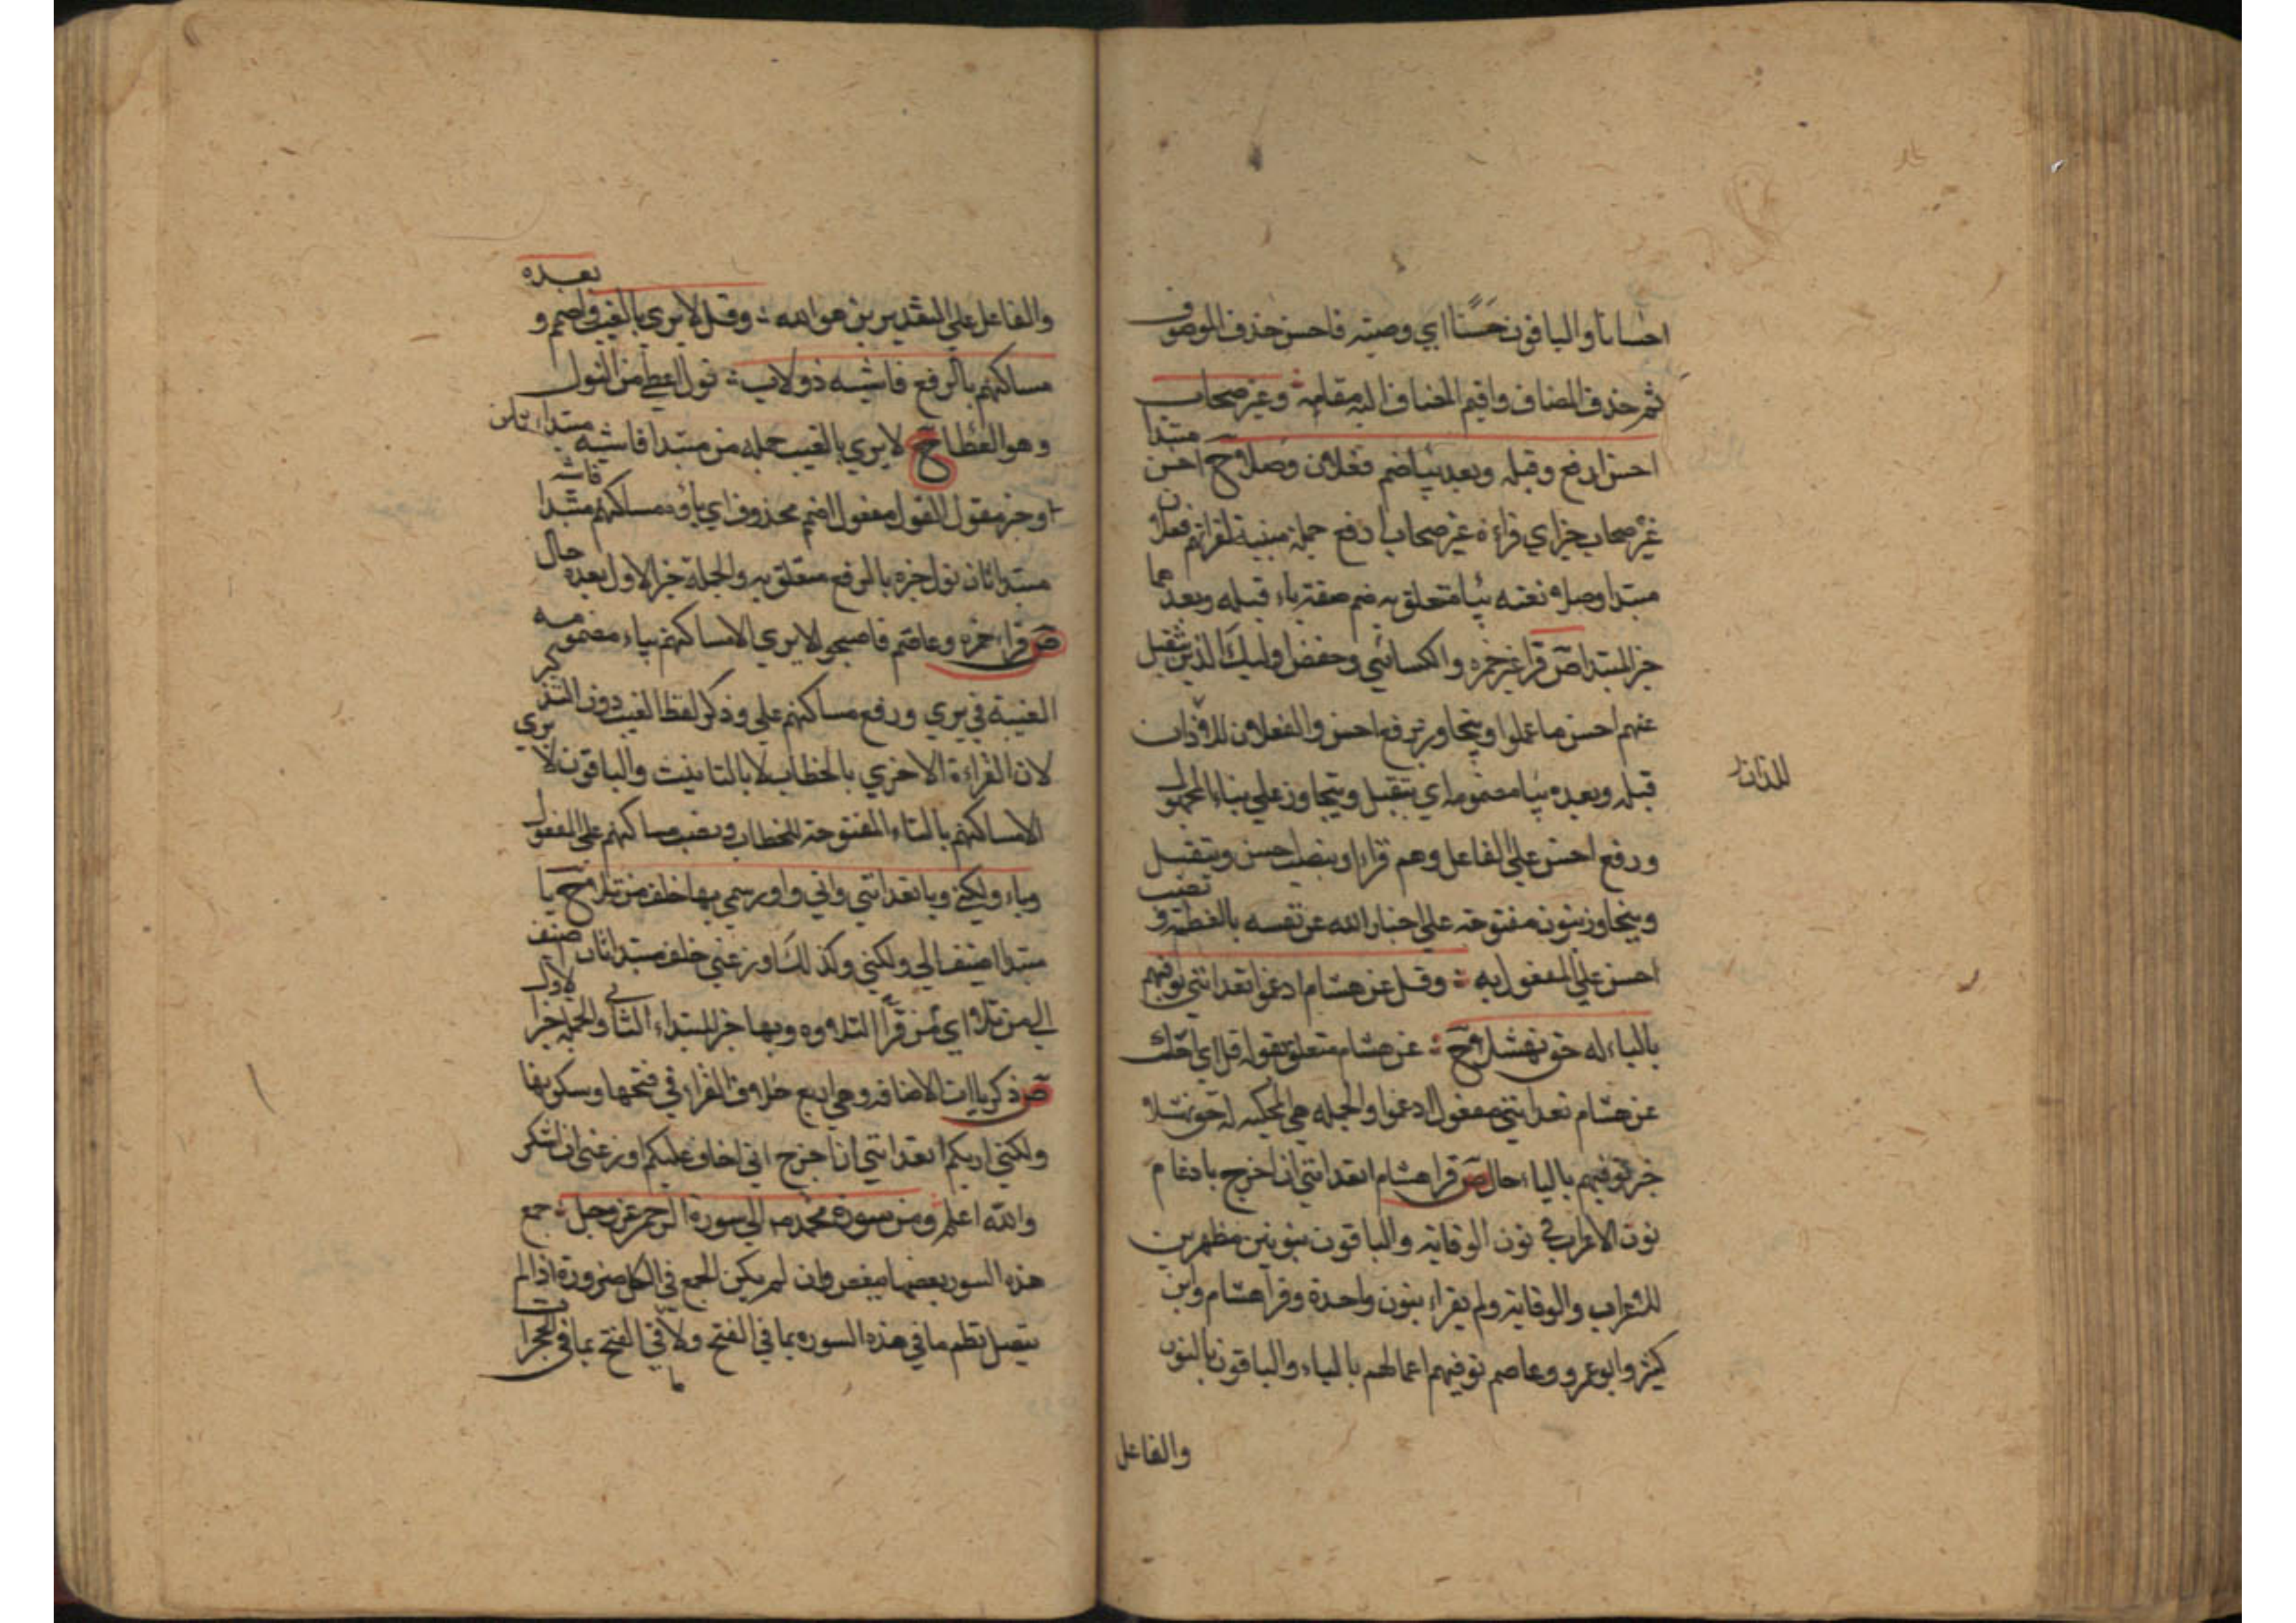 احسانا والباقون حَسَنًا اي وصيته فاحسن حذف الموصوف
ثم حذف المضاف واقيم المضاف اليه مقامه وغير صحاب
احسن ارفع وقبله وبعد بياضم فعلان وصلا ح احسن مبتدا
غير صحاب خبر اي قراءة غير صحاب ارفع جملة مبنية لقراتهم فعلان
مبتدا وصلا نعته بيا متعلق به ضم صفة ياء قبله وبعد هما
خبر المبتدا ص قرا غير حمزه والكسائي وحفص اوليك الذين يتقبل
عنهم احسن ما عملوا ويتجاوز برفع احسن والفعلان اللذان
للذان
قبله وبعده بيا مضمومه اي يتقبل ويتجاوز علي بناء المجهول
ورفع احسن علي الفاعل وهم قراوا بنصب احسن ونتقبل
ونتجاوز بنون مفتوحه علي اخبار الله عن نفسه بالعظمة ونصب
احسن علي المفعول به وقل عن هشام ادغموا تعدانني نوفيهم
بالياء له حق نهشلا ح عن هشام متعلق بقوله قل اي احك
عن هشام تعدانني مفعول ادغموا والجمله هي المحكيه له حق نهشلا
خبر نوفيهم بالياء حال ص قرا هشام اتعدانني ان اخرج بادغام
نون الاعراب في نون الوقاية والباقون بنونين مظهرين
للاعراب والوقاية ولم يقراء بنون واحدة وقرا هشام وابن
كثير وابو عمرو وعاصم نوفيهم اعمالهم بالياء والباقون بالنون
والفاعل
والفاعل علي التقديرين هو الله وقل لا يري بالغيب واضمم وبعده
مساكنهم بالرفع فاشيه نولا ب نول العطا من النول
وهو العطا ح لا يري بالغيب جمله من مبتدا فاشيه مبتدا ثان
او خبر مقول القول مفعول اضمم محذوف اي ياؤه مساكنهم مبتدا فاشيه
مبتدا ثان نول خبره بالرفع متعلق به والجملة خبر الاول بعده حال
ص قراء حمزه وعاصم فاصبحوا لا يري الا مساكنهم بياء مضمومه
الغيبة في يري ورفع مساكنهم علي وذكر لفظ الغيب دون التذكير
لان القراءة الاخري بالخطاب لا بالتانيث والباقون لا تري
الا مساكنهم بالتاء المفتوحة للخطاب ونصب مساكنهم علي المفعول
وياء ولكني ويا تعدانني واني واوزعني بها خلف من تلا ح يا
مبتدا اضيف الي ولكني وكذلك اوزعني خلف مبتدا ثان اضيف
الي من تلا اي من قرأ التلاوه وبها خبر المبتداء الثاني والجمله خبر الاول
ص ذكر ياات الاضافه وهي اربع خلاف القراء في فتحها وسكونها
ولكني اريكم اتعدانني ان اخرج اني اخاف عليكم اوزعني ان اشكر
والله اعلم ومن سورة محمد صـ الي سورة الرحمن عز وجل جمع
هذه السور بعضها ببعض وان لم يكن الجمع في الكل ضرورة اذ لم
يتصل نظم ما في هذه السوره بما في الفتح ولا ما في الفتح بما في الحجرات